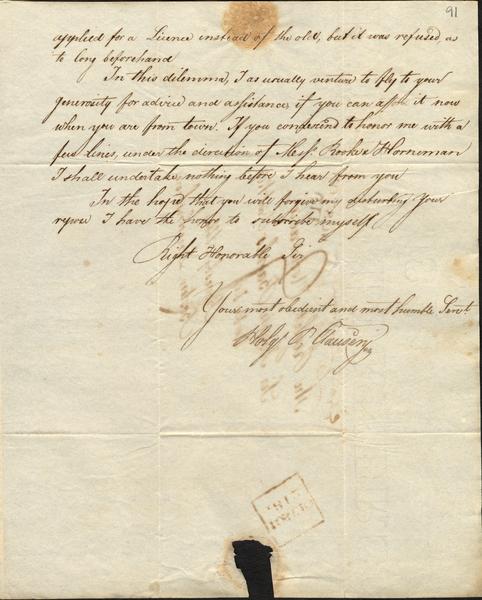 91
applied for a Licence instead of the old, but it was refused, as
to long beforehand
In this dilemma, I as usually venture to fly to your
generosity for advice and assistance, if you can afford it now
when you are from town. If you condescend to honor me with a
few lines, under the direction of Mess. Rooke & Horneman
I shall undertake nothing before I hear from you
In the hope that you will forgive my disturbing Your
repose I have the honor to subscribe myself
Right Honorable Sir
Your most obedient and most humble Servt.
Holg P Clausen